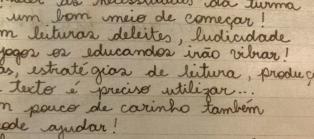 as necessidades da turma
um bom meio de começar!
m leituras deleites, ludicidade
jogos os educandos irão vibrar!
as, estratégias de leitura, produç
texto é preciso utilizar...
m pouco de carinho também
ode ajudar!